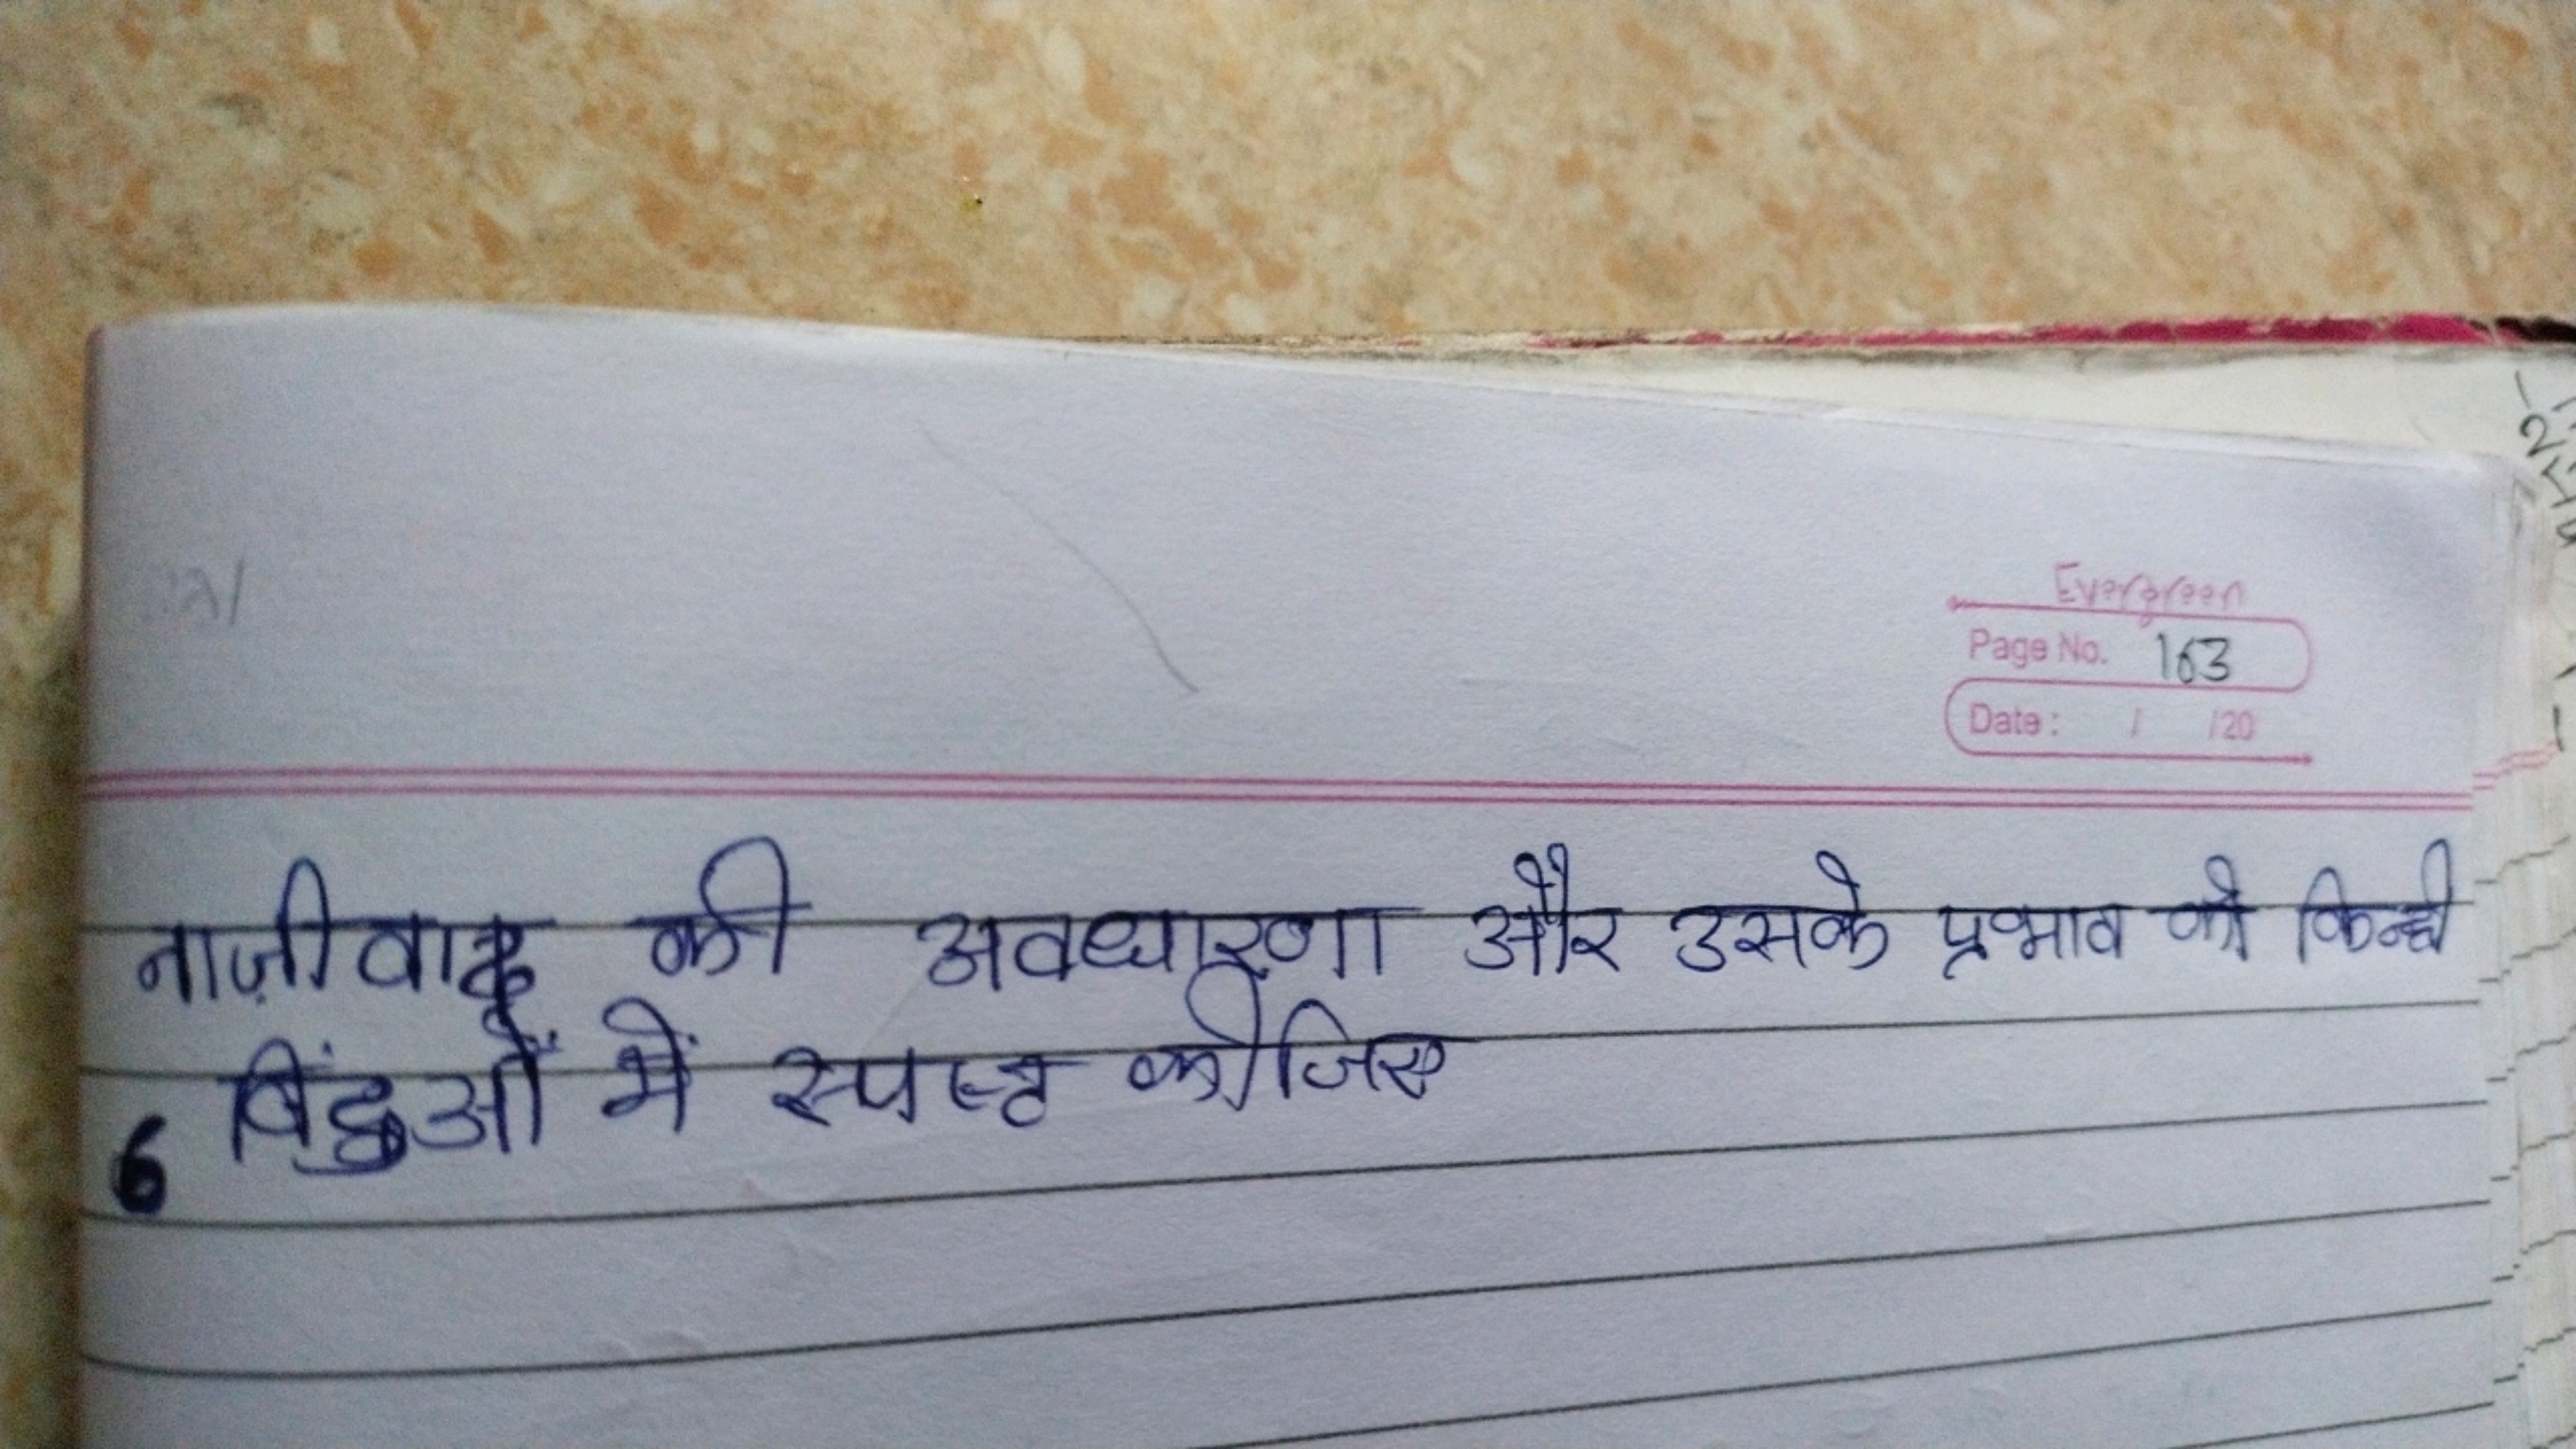 Evergreen
Page No. 163
Date : / /20
नाज़ीवाद की अवधारणा और उसके प्रभाव को किन्ही
6 बिंदुओं में स्पष्ट कीजिए